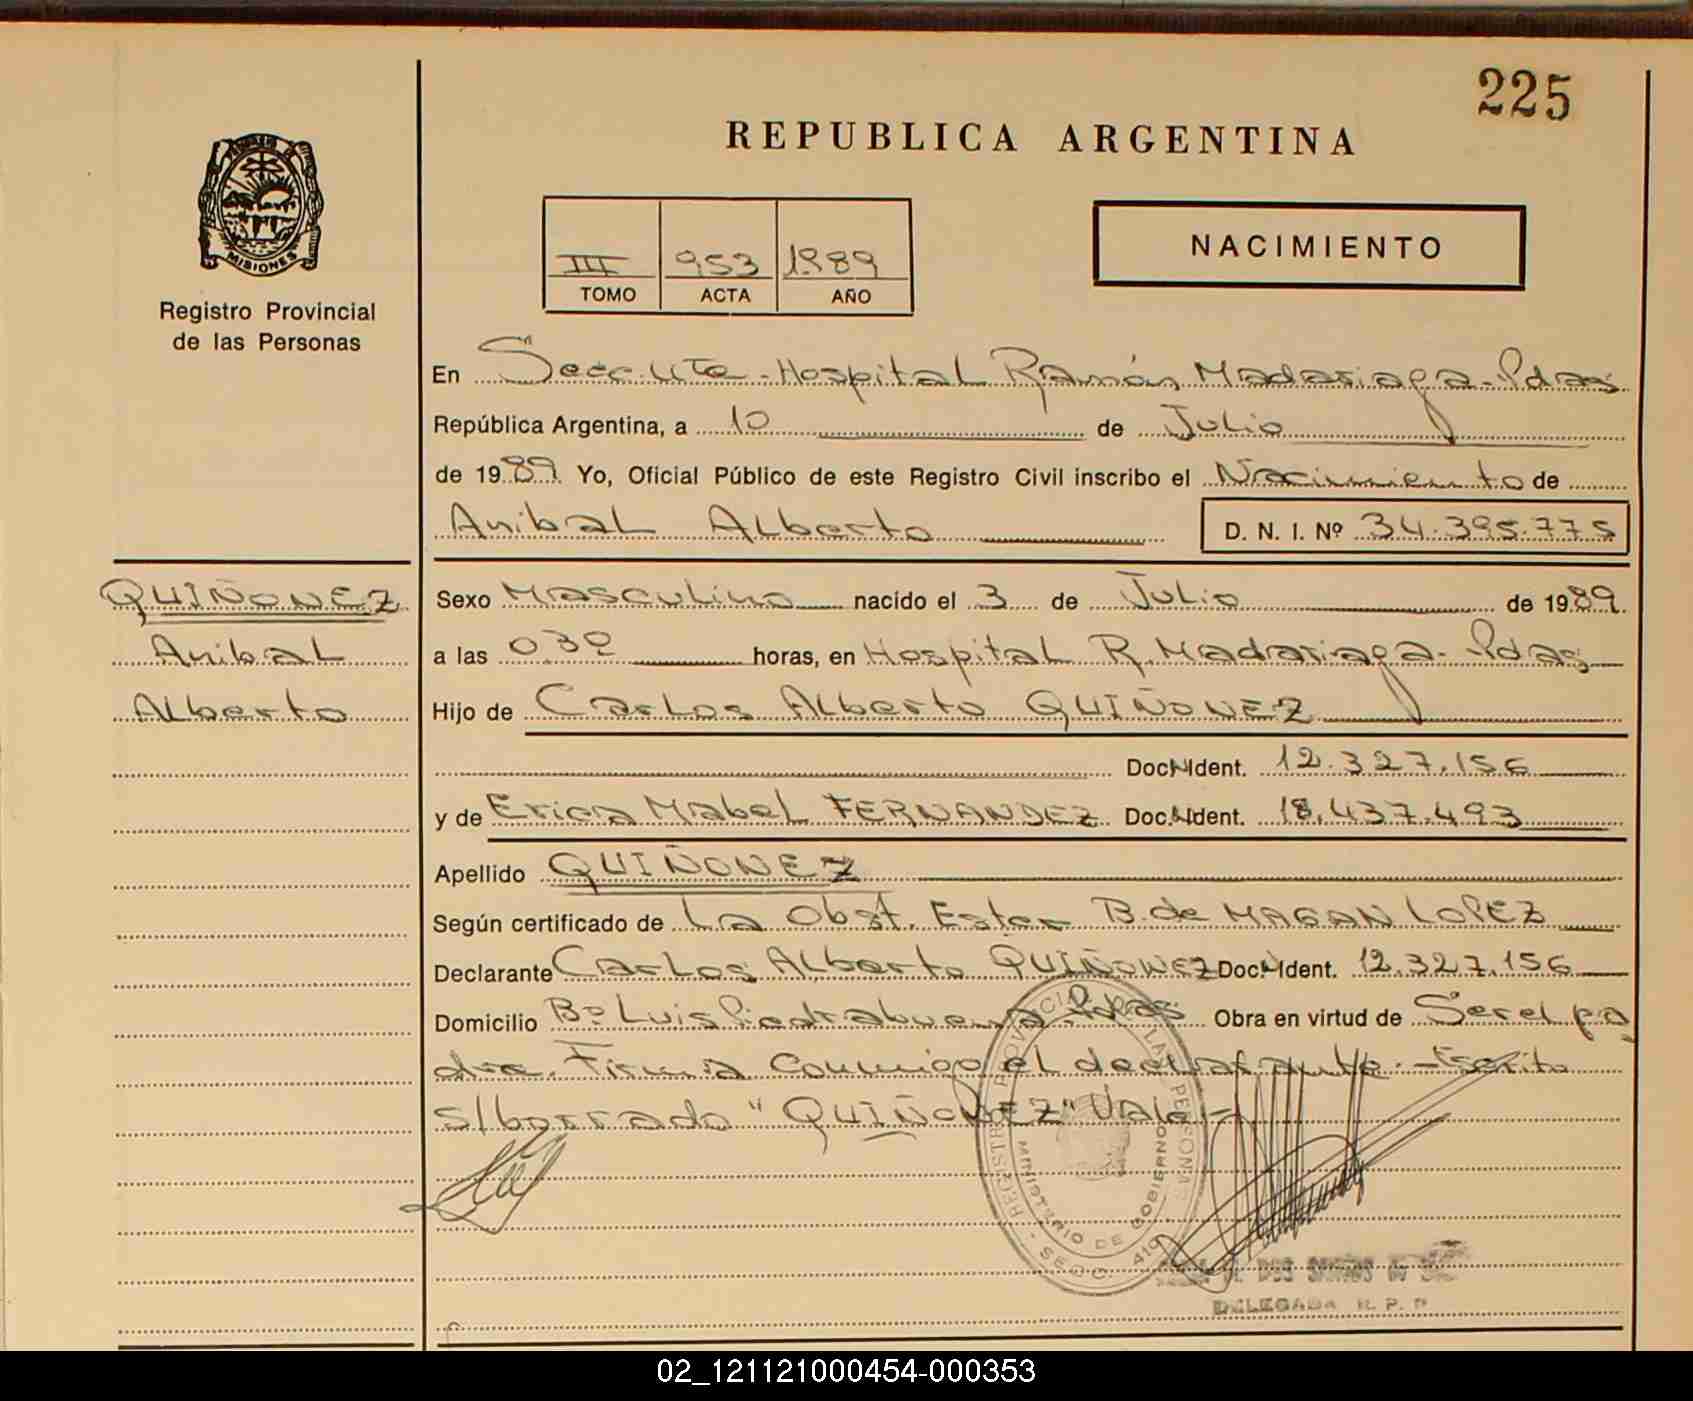 225
REPUBLICA ARGENTINA
MISIONES
Registro Provincial
de las Personas
III 953 1989
TOMO ACTA AÑO
NACIMIENTO
En Secc. Uta - Hospital Ramón Madariaga - Pdas
República Argentina, a 10 de Julio
de 1989. Yo, Oficial Público de este Registro Civil inscribo el Nacimiento de
Anibal Alberto D. N. I. Nº 34.395.775
QUIÑONEZ
Anibal
Alberto
Sexo Masculino nacido el 3 de Julio de 1989.
a las horas, en Hospital R. Madariaga - Pdas
Hijo de Carlos Alberto QUIÑONEZ
Doc. N Ident. 12.327.156
y de Erica Mabel FERNANDEZ Doc. N Ident. 18.437.493
Apellido QUIÑONEZ
Según certificado de La Obst. Ester B. de MAGAN LOPEZ
Declarante Carlos Alberto QUIÑONEZ Doc N Ident. 12.327.156
Domicilio Bº Luis Piedrabuena. Pdas Obra en virtud de Ser el pa
dre. Firma conmigo el declarante. - Escrito
s/borrado "QUIÑONEZ" Vale -
REGISTRO PROVINCIAL LAS PERSONAS
MINISTERIO DE GOBIERNO
SECC. 410
DOS SANTOS DE
DELEGADA R. P. P.
02_121121000454-000353